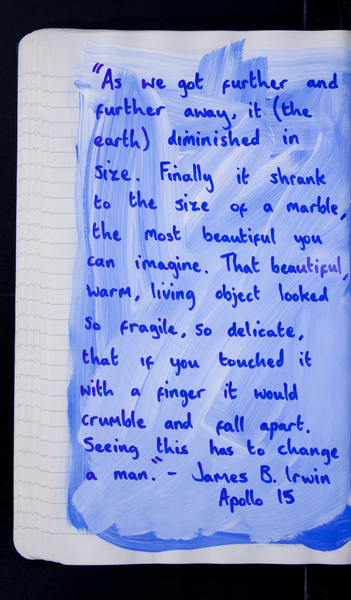 "As we got further and
further away, it (the
earth) diminished in
size. Finally it shrank
to the size of a marble,
the most beautiful you
can imagine. That beautiful,
warm, living object looked
so fragile, so delicate,
that if you touched it
with a finger it would
crumble and fall apart.
Seeing this has to change
a man." - James B. Irwin
Apollo 15